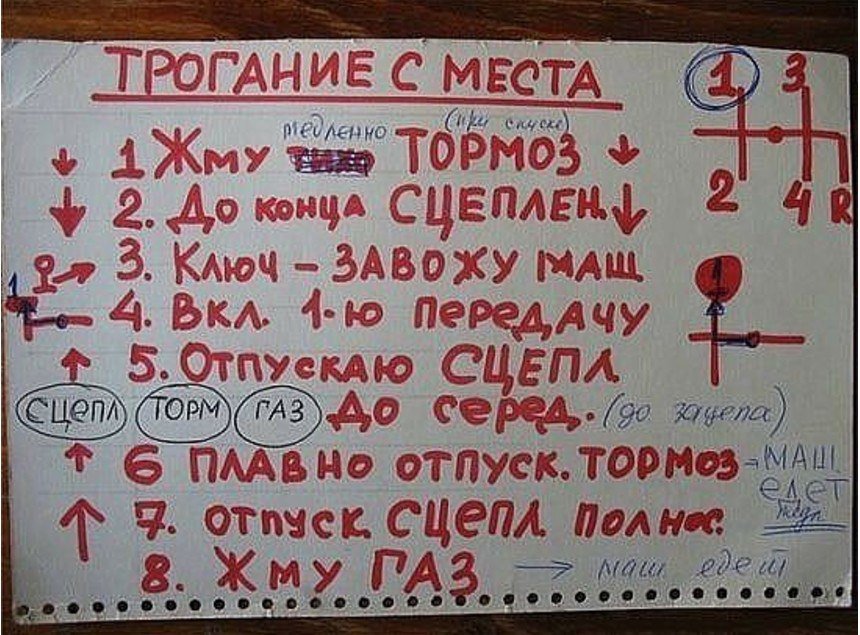 ТРОГАНИЕ С МЕСТА
1 3
2 4 R
медленно (при спуске)
1 Жму ТОРМОЗ
2. До конца СЦЕПЛЕН.
3. Ключ – ЗАВОЖУ МАШ
1
1
4. Вкл. 1-ю передачу
5. Отпускаю СЦЕПЛ
СЦЕПЛ ТОРМ ГАЗ До серед. (до зацепа)
6 ПЛАВНО отпуск. ТОРМОЗ → МАШ
едет
7. отпуск. СЦЕПЛ полнос.
8. Жму ГАЗ → маш едет